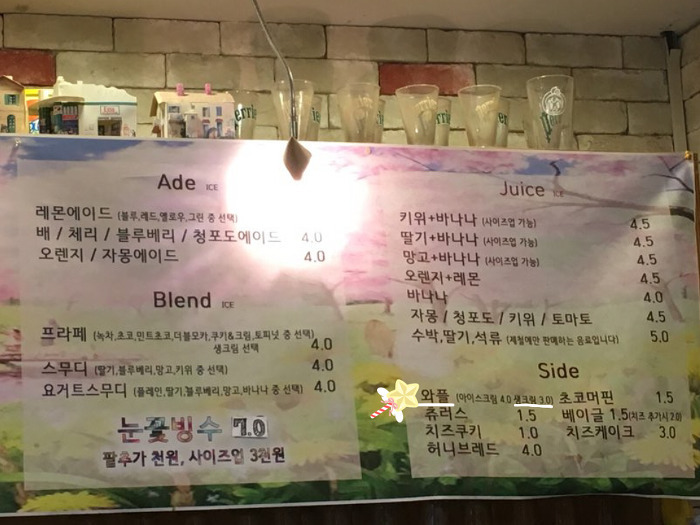 Ade ICE
레몬에이드 (블루,레드,옐로우,그린 중 선택)
배 / 체리 / 블루베리 / 청포도에이드 4.0
오렌지 / 자몽에이드 4.0
Blend ICE
프라페 (녹차,초코,민트초코,더블모카,쿠키&크림,토피넛 중 선택)
생크림 선택 4.0
스무디 (딸기,블루베리,망고,키위 중 선택) 4.0
요거트스무디 (플레인,딸기,블루베리,망고,바나나 중 선택) 4.0
눈꽃빙수 7.0
팥추가 천원, 사이즈업 3천원
Juice ICE
키위+바나나 (사이즈업 가능) 4.5
딸기+바나나 (사이즈업 가능) 4.5
망고+바나나 (사이즈업 가능) 4.5
오렌지+레몬 4.5
바나나 4.0
자몽 / 청포도 / 키위 / 토마토 4.5
수박,딸기,석류 (제철에만 판매하는 음료입니다) 5.0
Side
와플 (아이스크림 4.0 생크림 3.0) 초코머핀 1.5
츄러스 1.5 베이글 1.5 (치즈 추가시 2.0)
치즈쿠키 1.0 치즈케이크 3.0
허니브레드 4.0